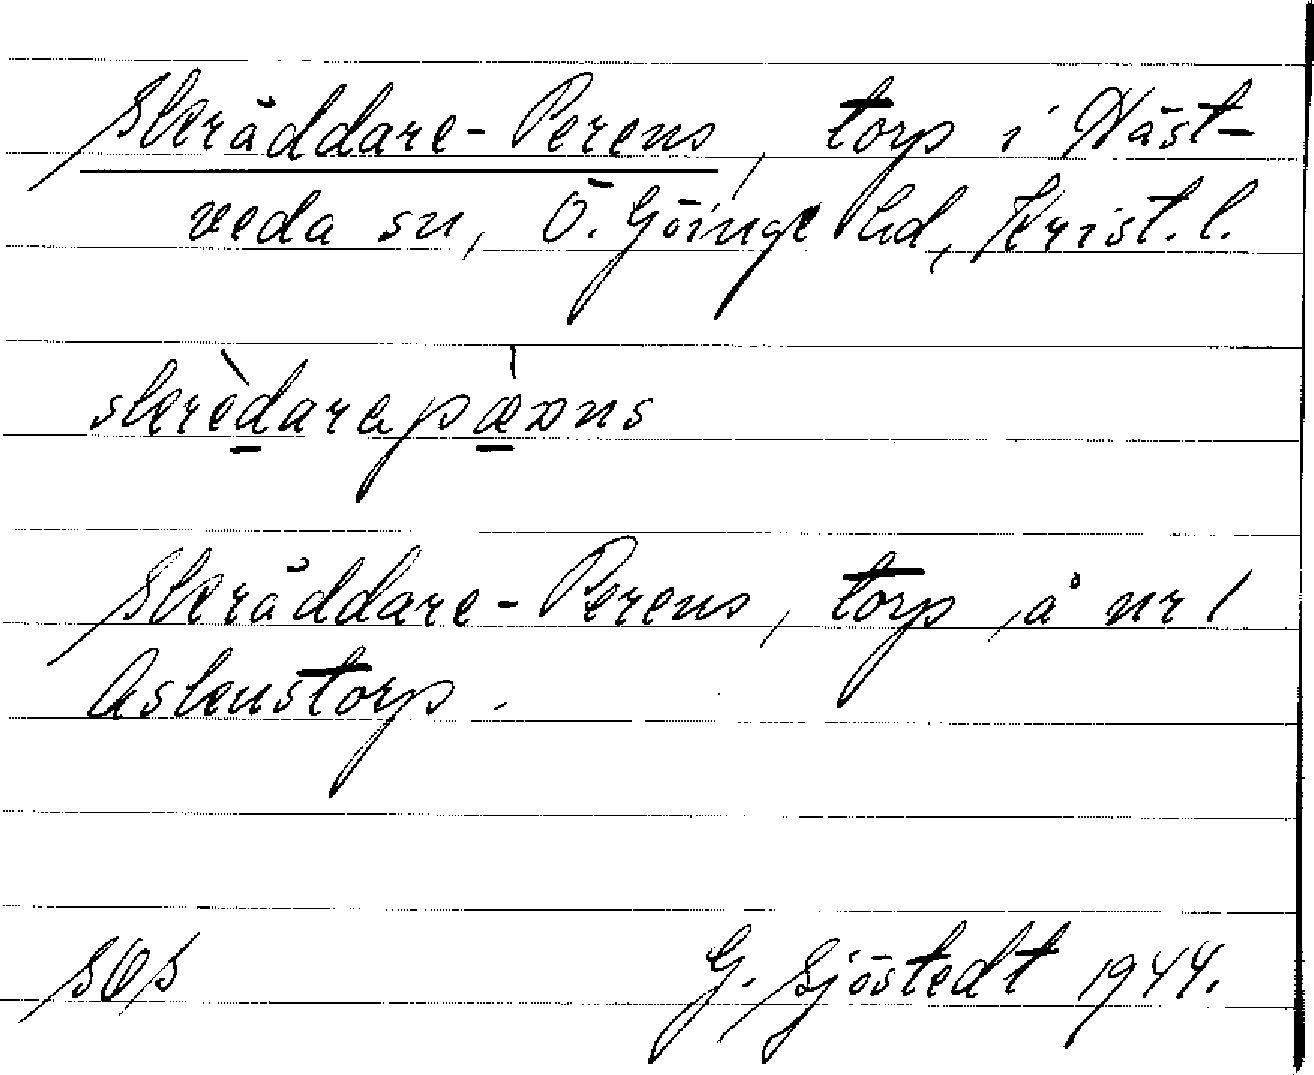 Skräddare-Perens, torp i Näst-
veda sn, Ö. Göinge hd, Krist. l.
skrèdarapæɒns
Skräddare-Perens, torp å nr 1
Askenstorp.
G. Sjöstedt 1944.